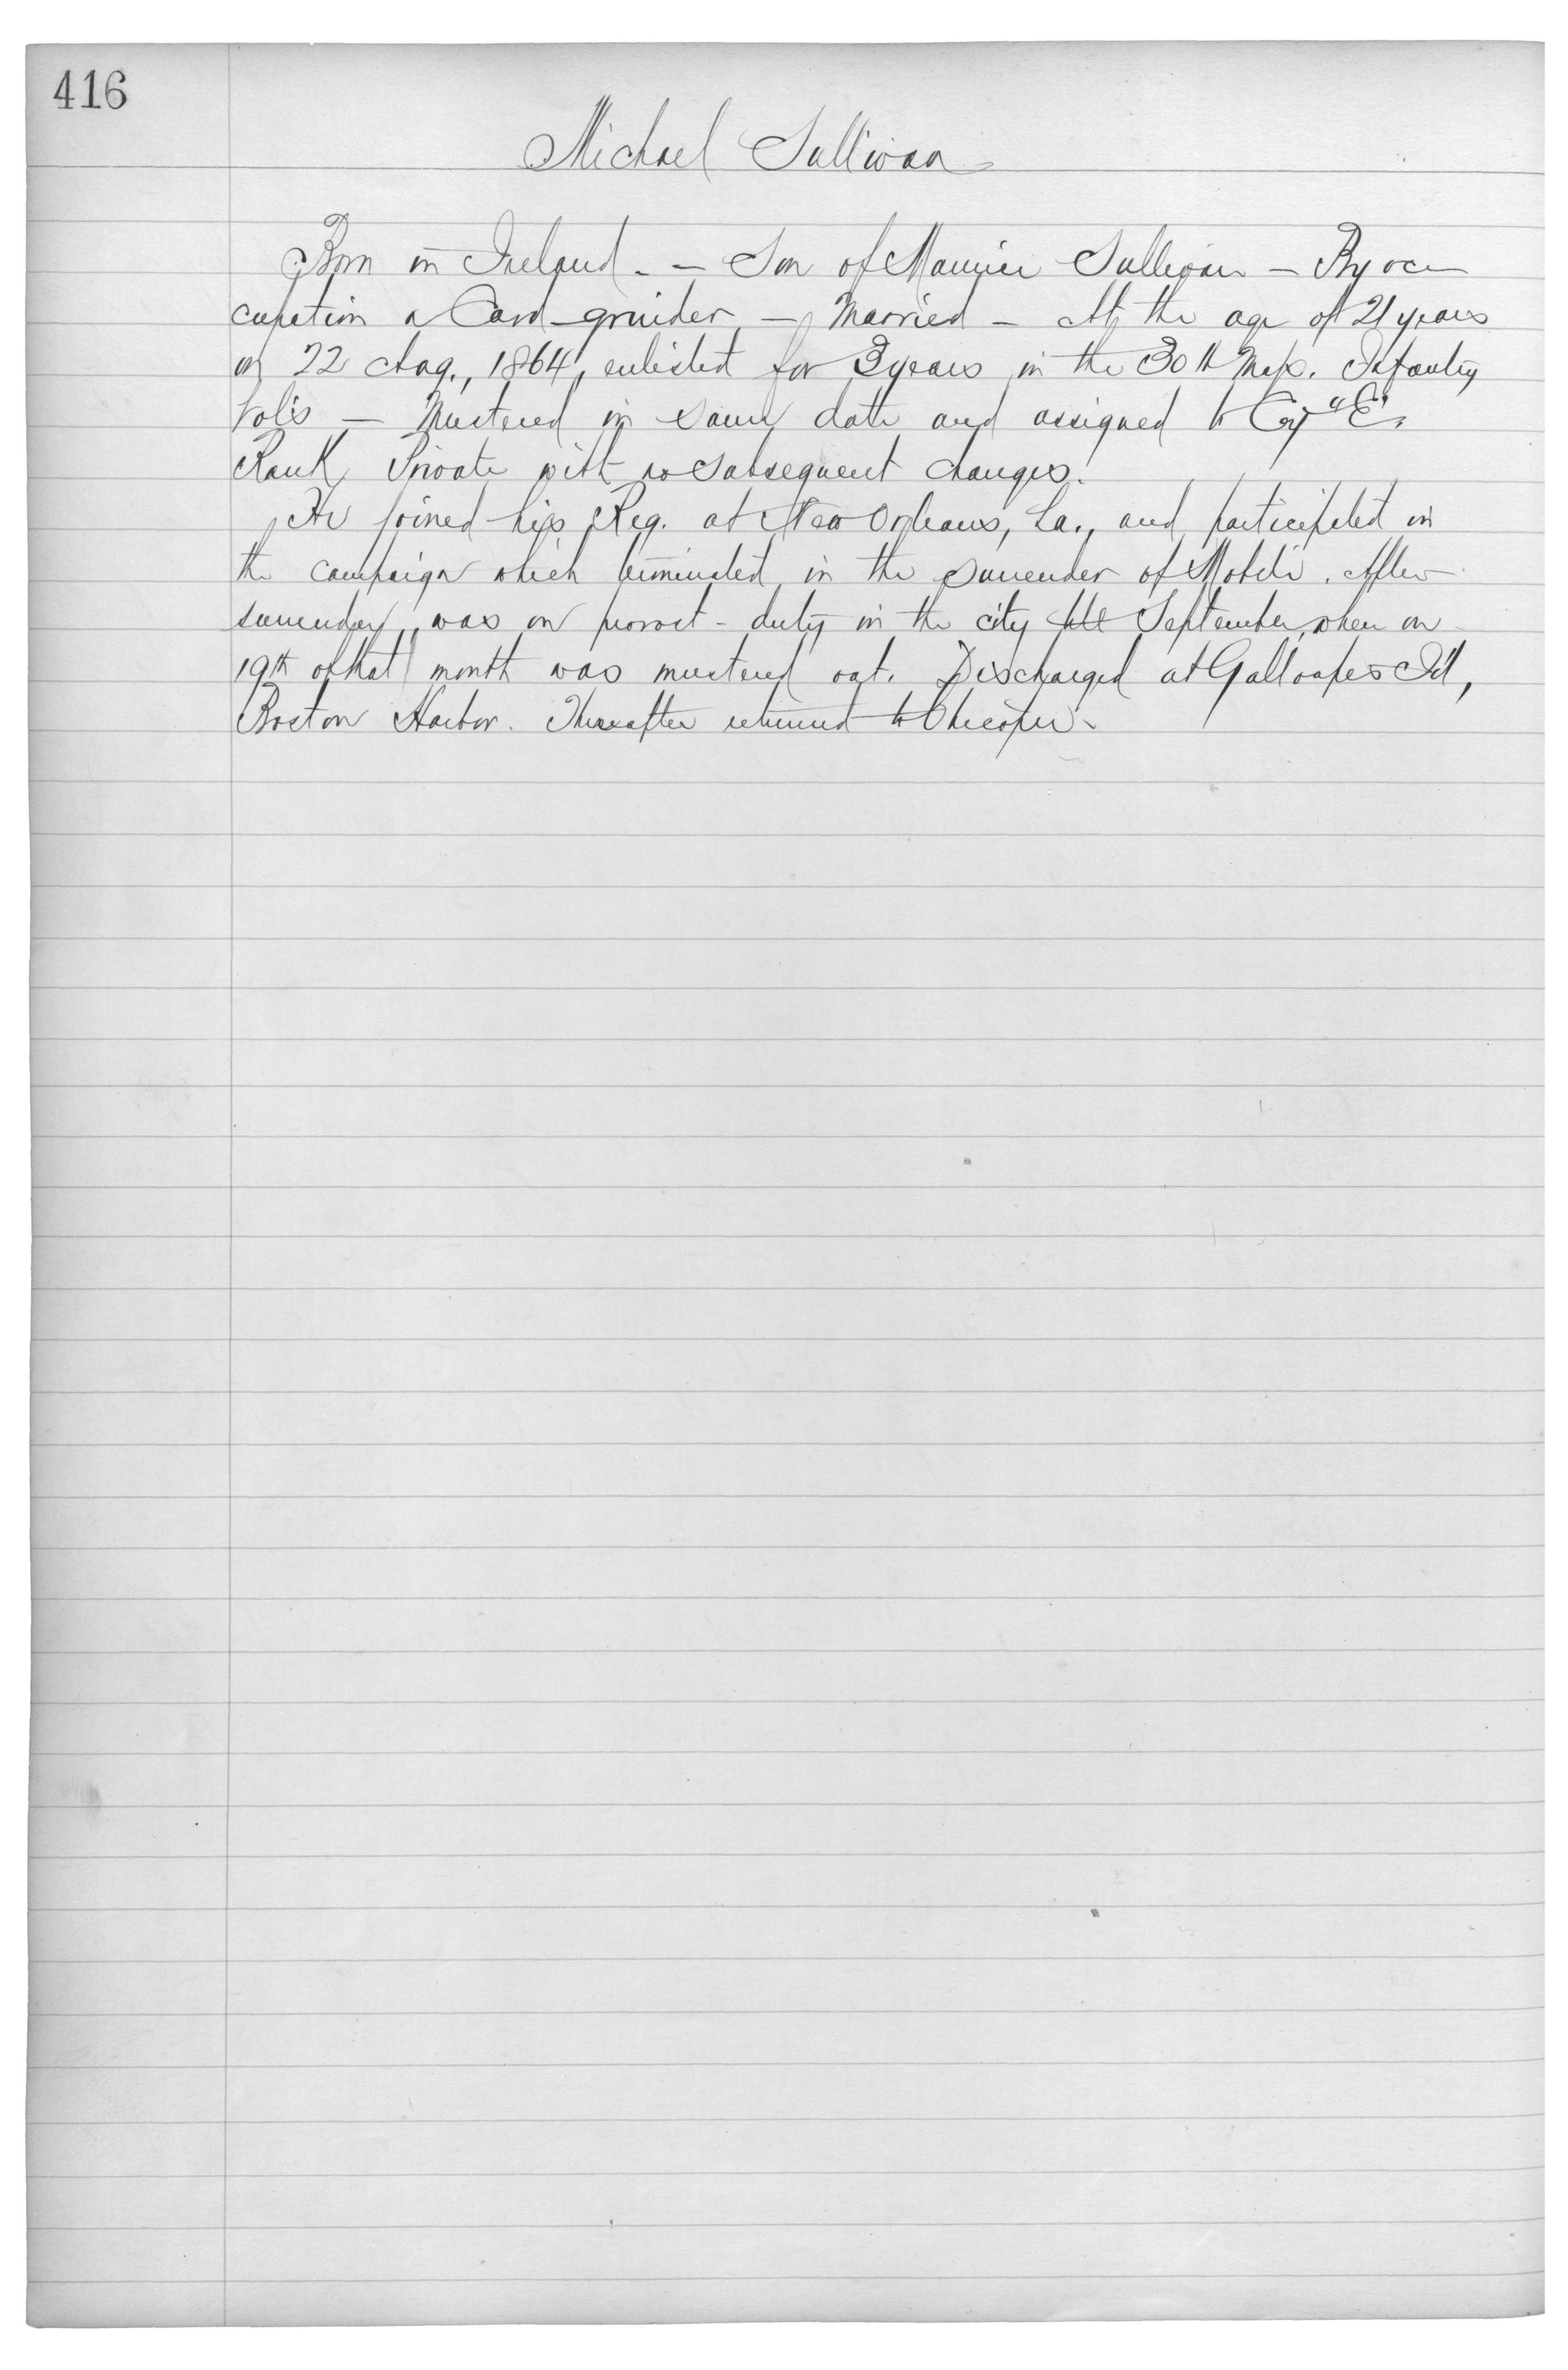 416
Michael Sullivan
Born in Ireland. - Son of Maurice Sullivan - By oc-
cupation a Card-grinder - Married - At the age of 21 years
on 22 Aug., 1864, enlisted for 3 years in the 30th Mass. Infantry
Vol's - Mustered in same date and assigned to Co'y "E".
Rank Private with no subsequent changes.
He joined his Reg. at New Orleans, La., and participated in
the campaign which terminated in the surrender of Mobile. After
surrender, was on provost-duty in the city till September, when on
19th of that month was mustered out. Discharged at Galloupes Isl'd,
Boston Harbor. Thereafter returned to Chicopee.